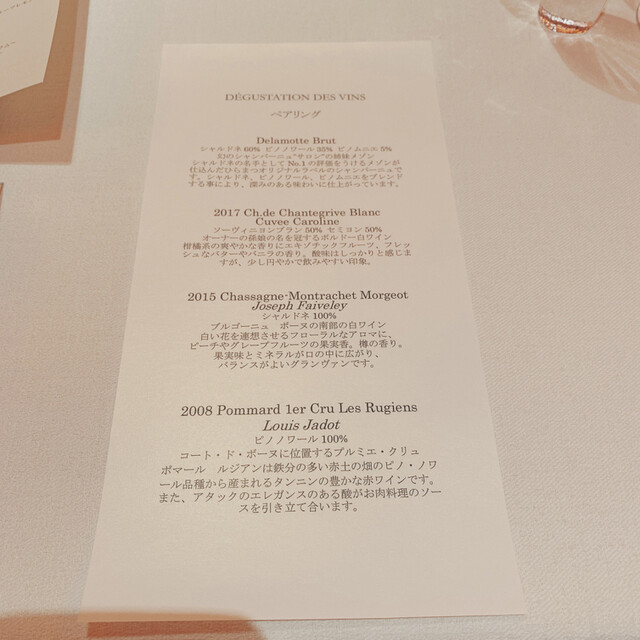 DÉGUSTATION DES VINS
ペアリング
Delamotte Brut
シャルドネ 60% ピノノワール 35% ピノムニエ 5%
幻のシャンパーニュ"サロン"の姉妹メゾン
シャルドネの名手として No.1 の評価をうけるメゾンが
仕込んだひらまつオリジナルラベルのシャンパーニュで
す。シャルドネ、ピノノワール、ピノムニエをブレンド
する事により、深みのある味わいに仕上がっています。
2017 Ch.de Chantegrive Blanc
Cuvee Caroline
ソーヴィニヨンブラン 50% セミヨン 50%
オーナーの孫娘の名を冠するボルドー白ワイン
柑橘系の爽やかな香りにエキゾチックフルーツ、フレッ
シュなバターやバニラの香り。酸味はしっかりと感じま
すが、少し円やかで飲みやすい印象。
2015 Chassagne-Montrachet Morgeot
Joseph Faiveley
シャルドネ 100%
ブルゴーニュ ボーヌの南部の白ワイン
白い花を連想させるフローラルなアロマに、
ピーチやグレープフルーツの果実香。樽の香り。
果実味とミネラルが口の中に広がり、
バランスがよいグランヴァンです。
2008 Pommard 1er Cru Les Rugiens
Louis Jadot
ピノノワール 100%
コート・ド・ボーヌに位置するプルミエ・クリュ
ポマール ルジアンは鉄分の多い赤土の畑のピノ・ノワ
ール品種から産まれるタンニンの豊かな赤ワインです。
また、アタックのエレガンスのある酸がお肉料理のソー
スを引き立て合います。